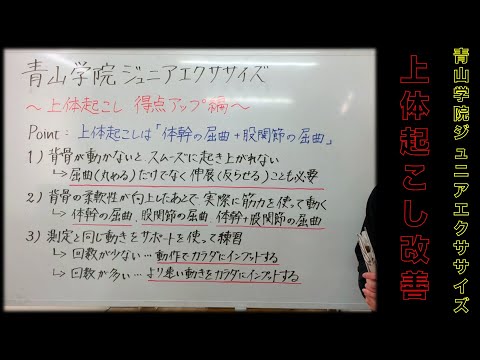 青山学院ジュニアエクササイズ
〜上体起こし 得点アップ編〜
Point: 上体起こしは「体幹の屈曲+股関節の屈曲」
1) 背骨が動かないと、スムーズに起き上がれない
↳ 屈曲(丸める)だけでなく伸展(反らせる)ことも必要
2) 背骨の柔軟性が向上したあとで、実際に筋力を使って動く
↳ 体幹の屈曲、股関節の屈曲、体幹+股関節の屈曲
3) 測定と同じ動きをサポートを使って練習
↳ 回数が少ない…動作でカラダにインプットする
↳ 回数が多い…より速い動きをカラダにインプットする
青山学院ジュニアエクササイズ
上体起こし改善